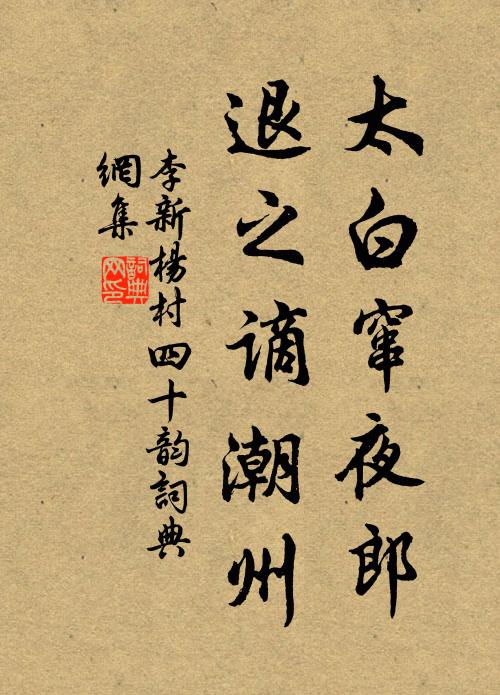 太白窜夜郎
退之谪潮州
李新杨村四十韵詞典
網集
詞典
网印